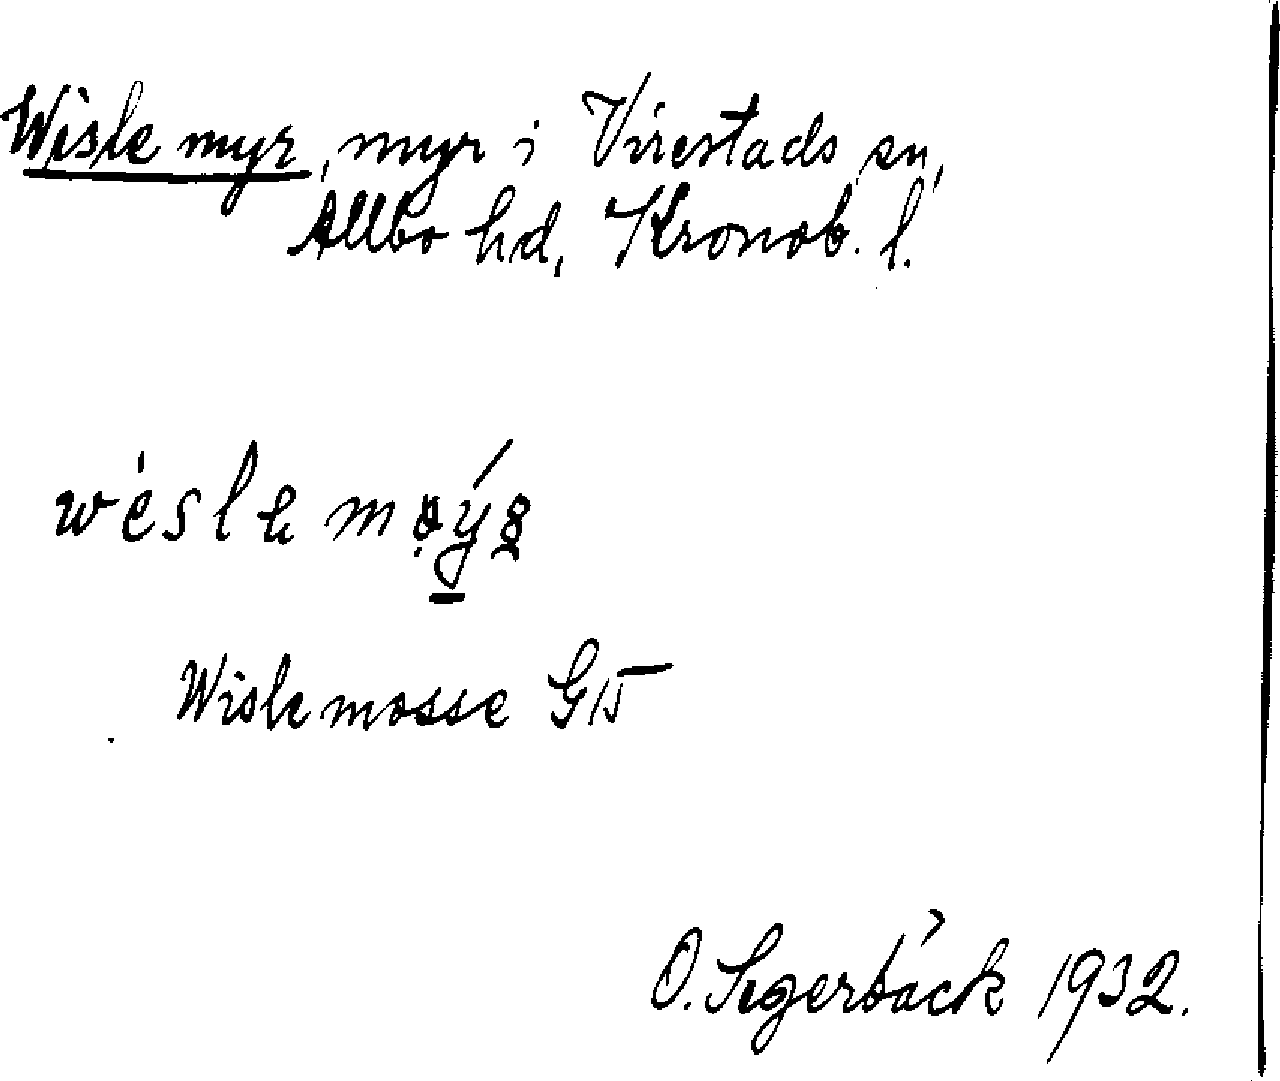 Wisle myr, myr i Virestads sn,
Allbo hd, Kronob. l.
wésle møýꝛ
Wislemosse G15
O. Segerbäck 1932.